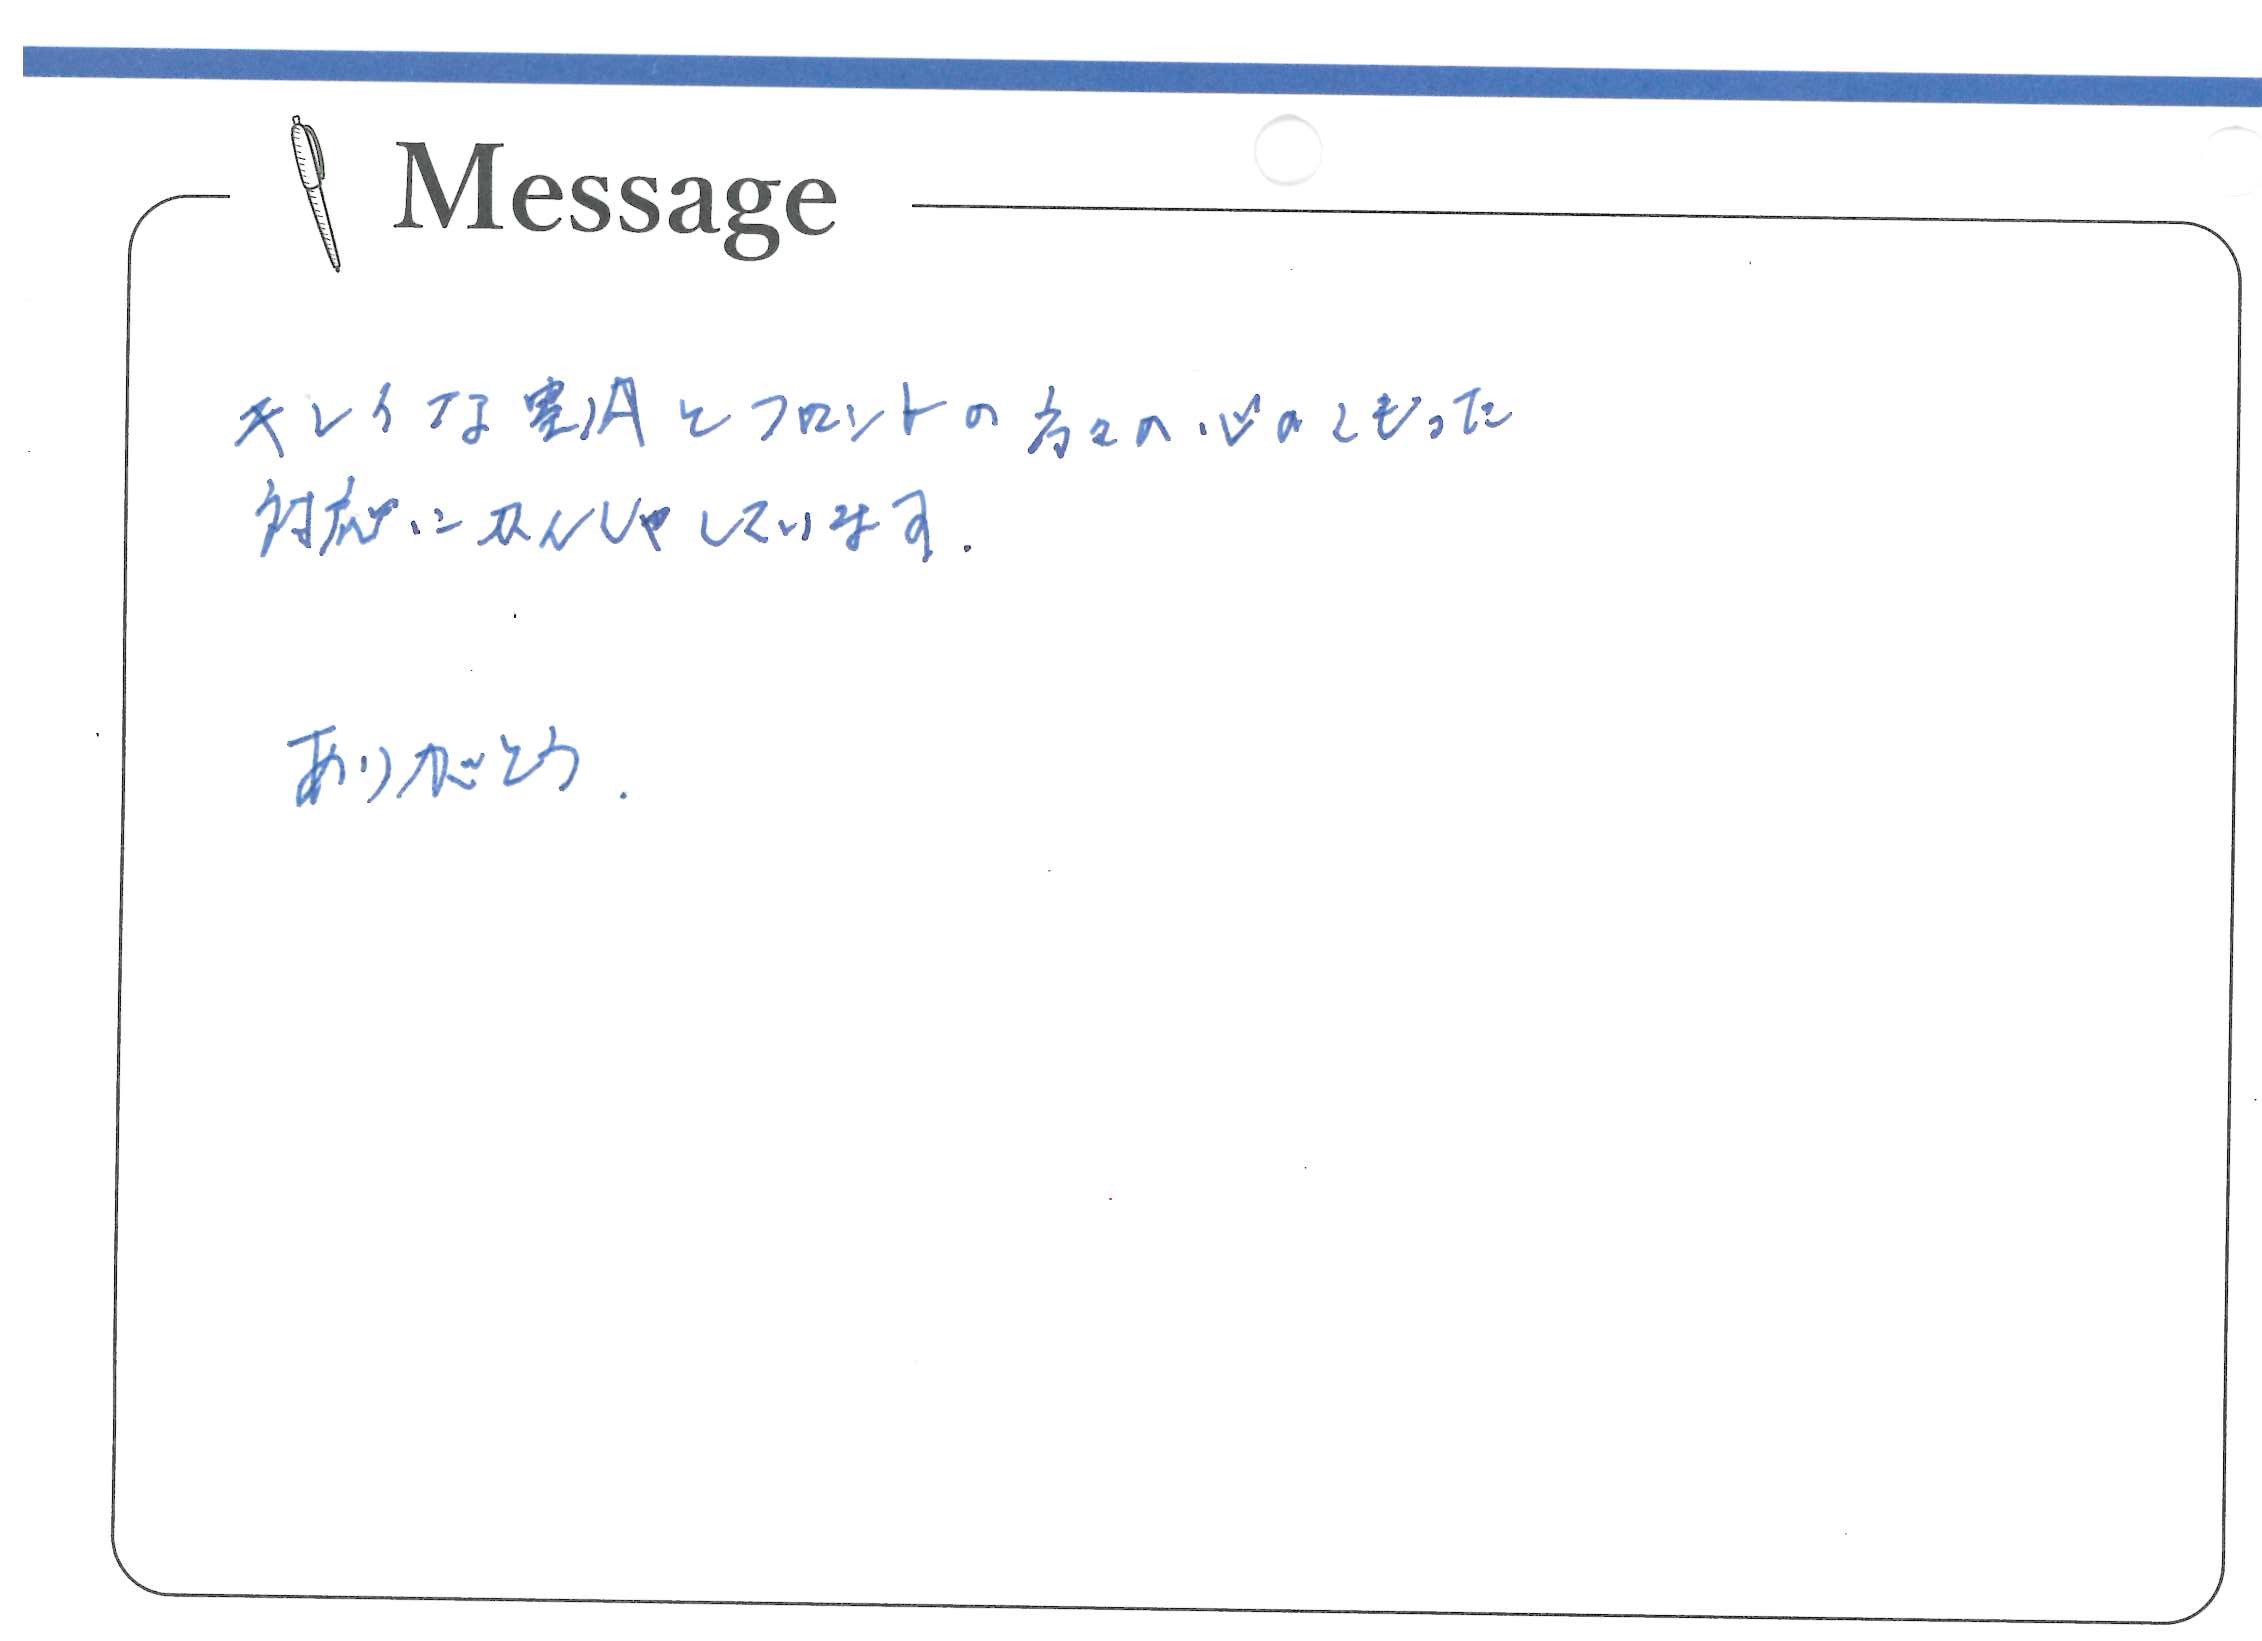 Message
キレイな室内とフロントの方々の心のこもった
対応にかんしゃしています.
ありがとう.